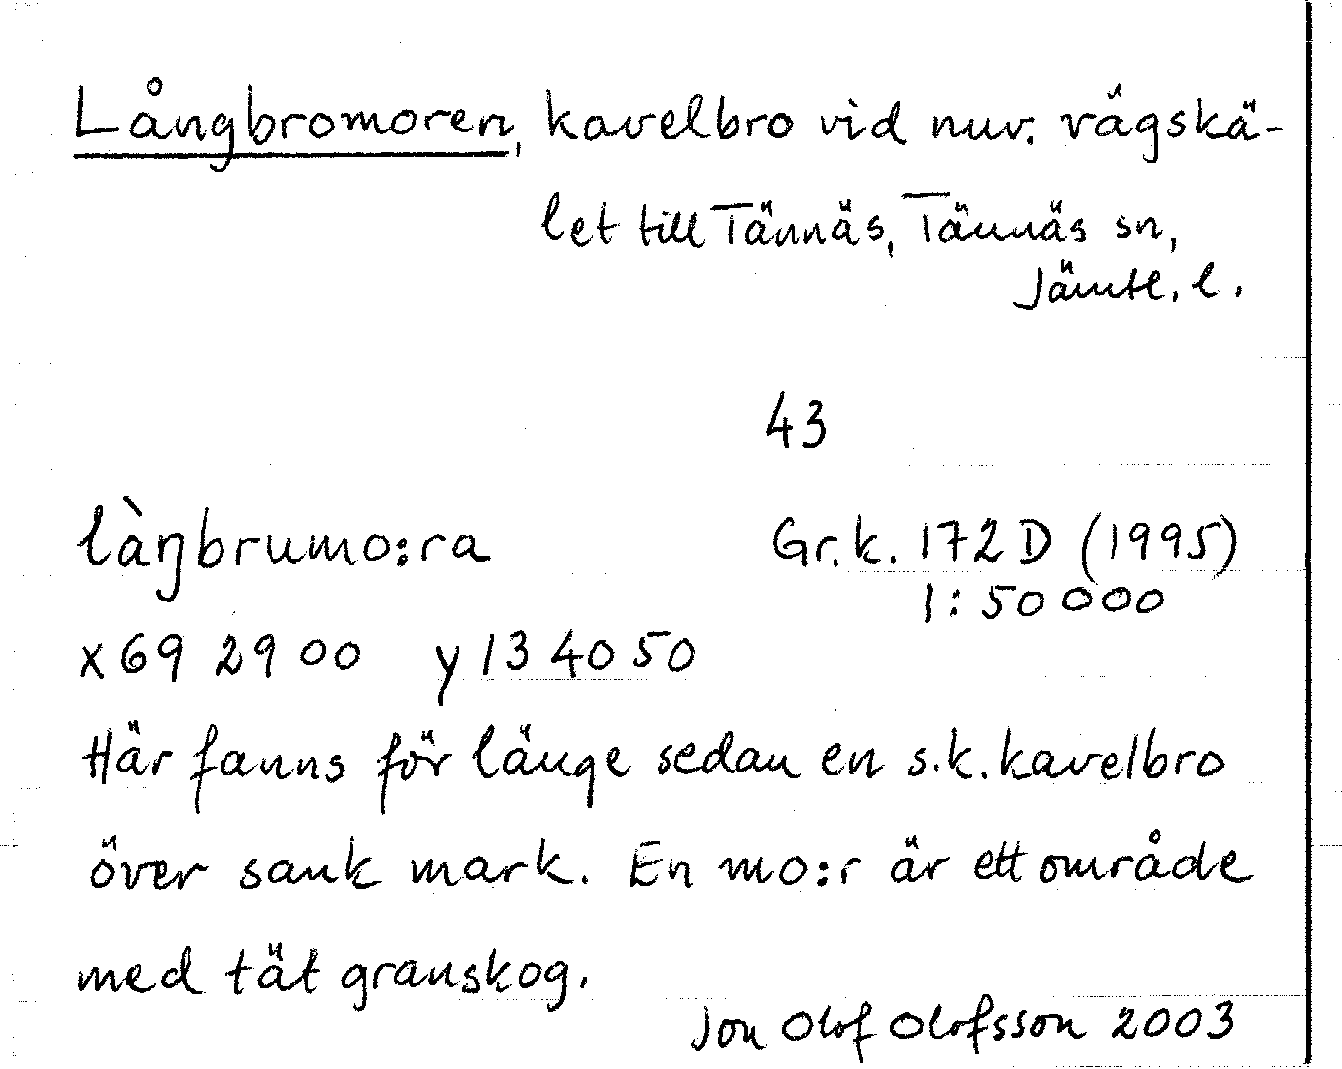 Långbromoren, kavelbro vid nuv. vägskä-
let till Tännäs, Tännäs sn,
Jämtl. l.
43
làŋbrumo:ra
Gr.k. 172 D (1995)
1:50 000
x 69 29 00 y 13 40 50
Här fanns för länge sedan en s.k. kavelbro
över sank mark. En mo:r är ett område
med tät granskog.
Jon Olof Olofsson 2003